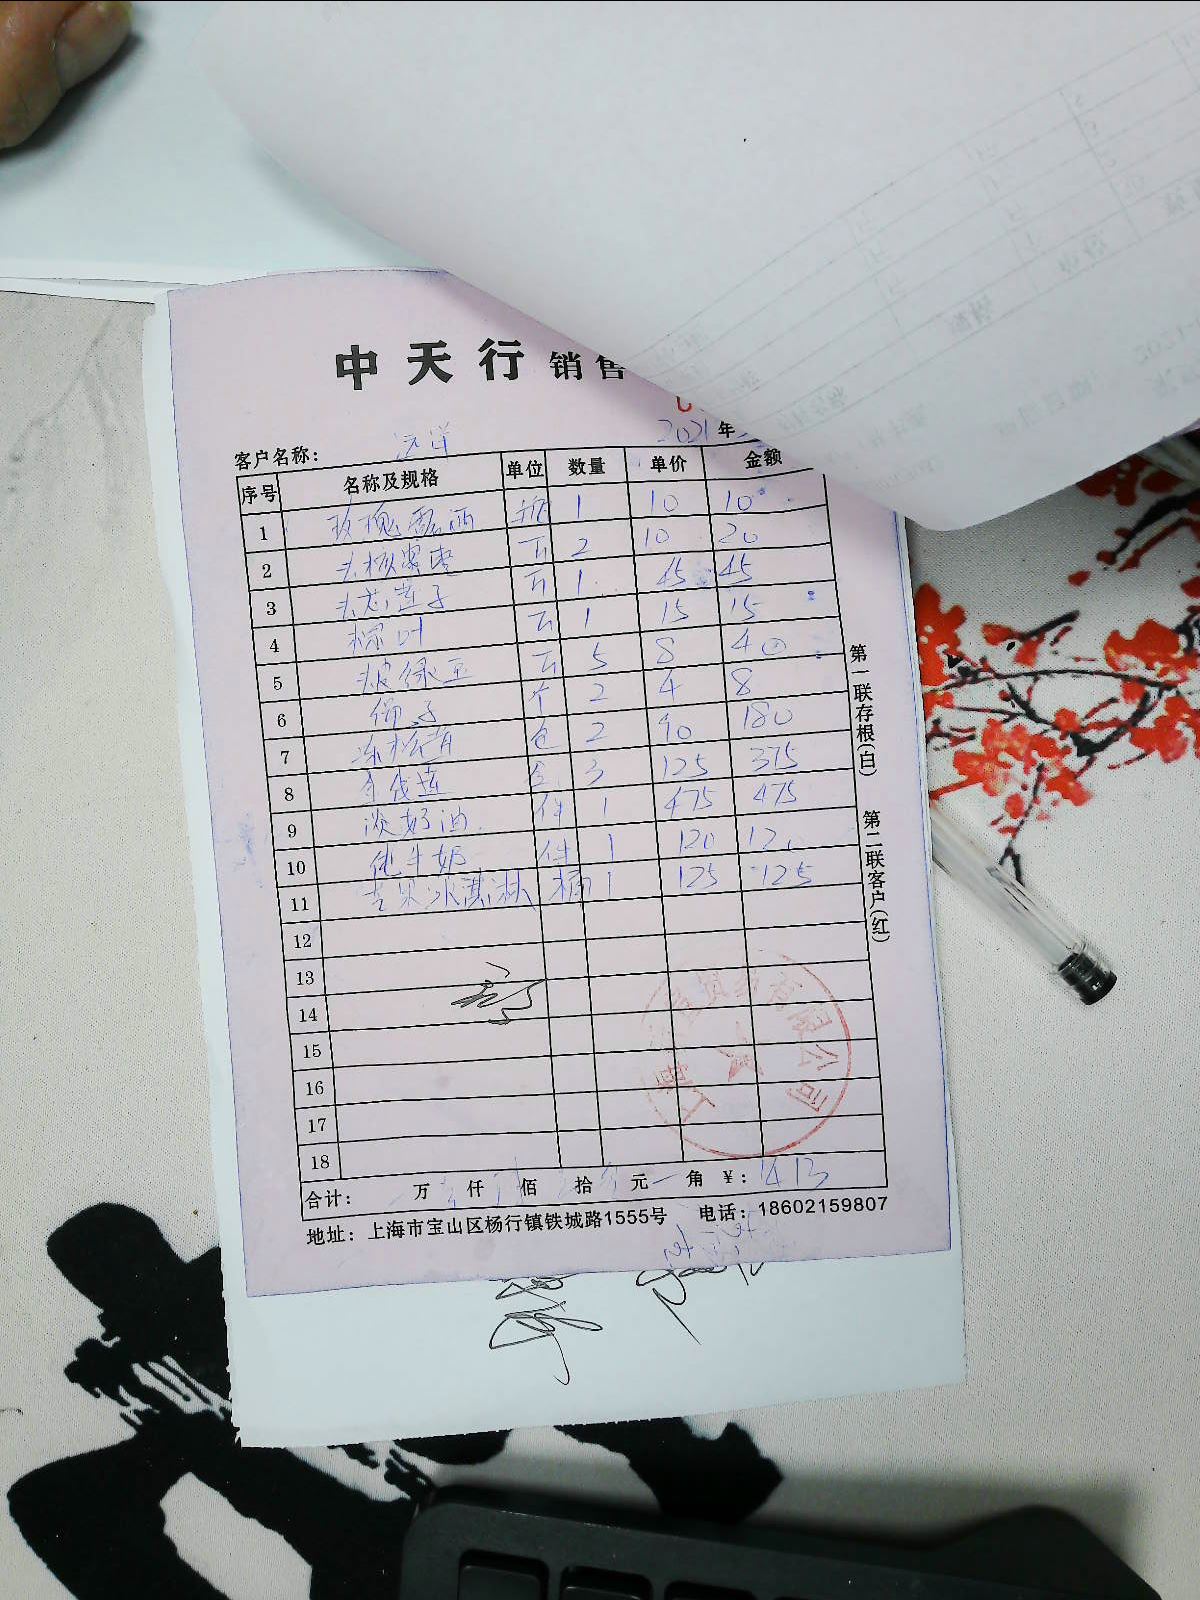 中天行 销售
客户名称： 远洋 2021年
序号 名称及规格 单位 数量 单价 金额
1 玫瑰露酒 瓶 1 10 10
2 去核黑枣 斤 2 10 20
3 去芯莲子 斤 1 45 45
4 粽叶 斤 1 15 15
5 去皮绿豆 斤 5 8 40
6 个 2 4 8
7 包 2 90 180
8 金线莲 3 125 375
9 淡奶油 件 1 475 475
10 纯牛奶 件 1 120 120
11 芒果冰淇淋 桶 1 125 125
12
13
14
15
16
17
18
合计： 万 仟 佰 拾 元 角 ¥： 1413
地址：上海市宝山区杨行镇铁城路1555号 电话：18602159807
第一联存根(白)
第二联客户(红)
贸易有限公司